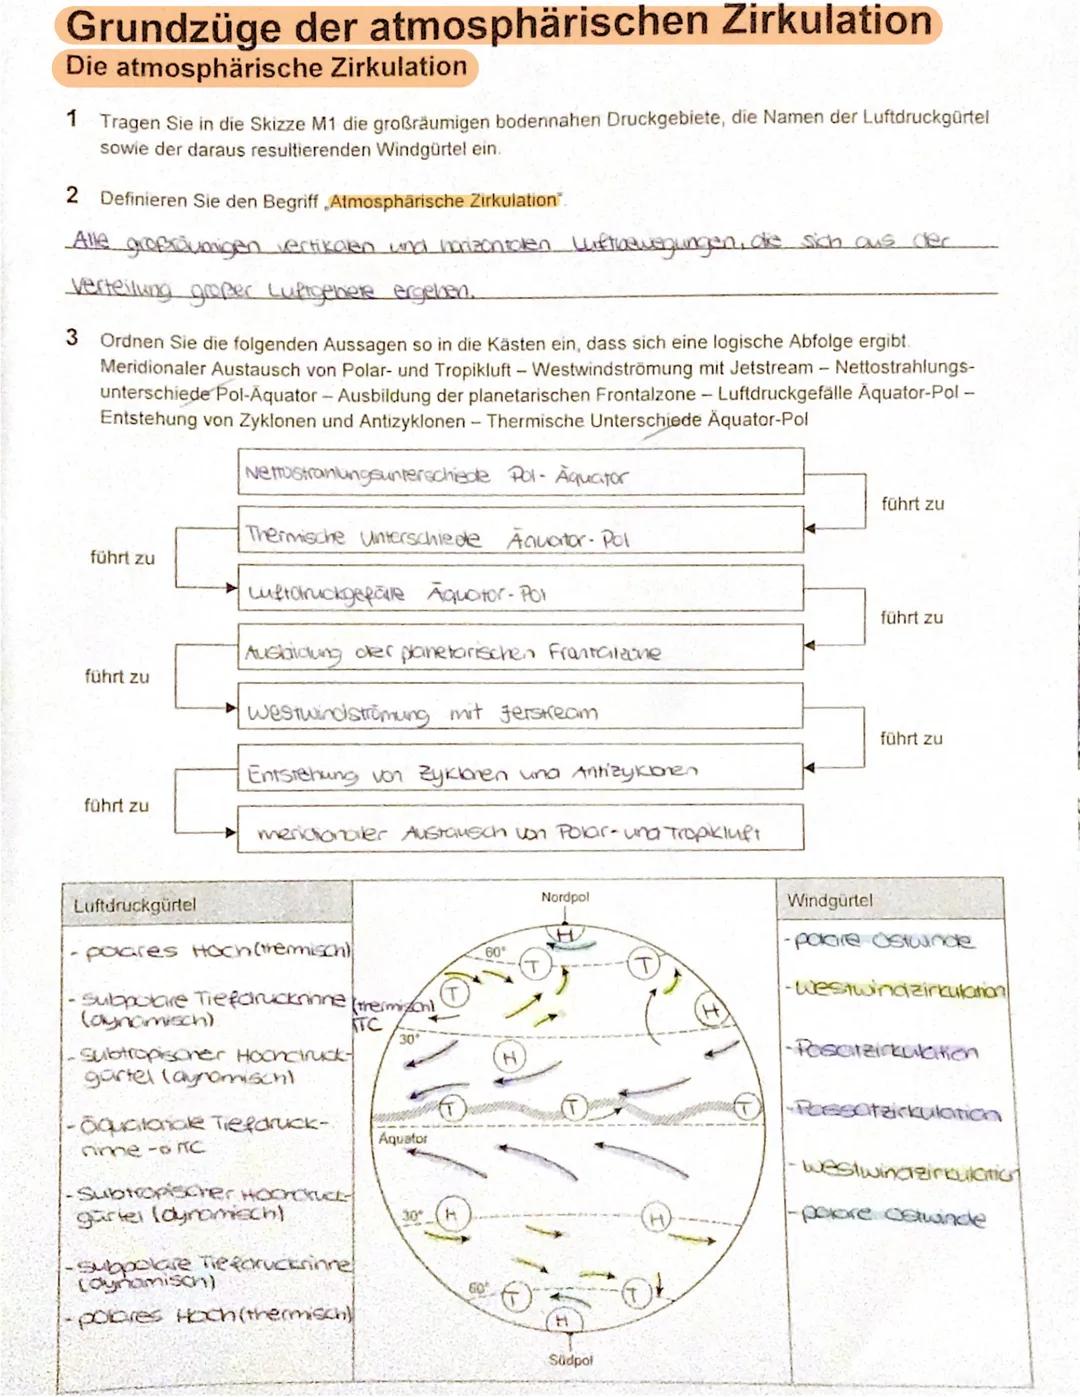 Grundzüge der atmosphärischen Zirkulation
Die atmosphärische Zirkulation
1 Tragen Sie in die Skizze M1 die großräumigen bodennahen Druckgebiete, die Namen der Luftdruckgürtel
sowie der daraus resultierenden Windgürtel ein.
2 Definieren Sie den Begriff „Atmosphärische Zirkulation“.
Alle großräumigen vertikalen und horizontalen Luftbewegungen, die sich aus der
Verteilung großer Luftgebiete ergeben.
3 Ordnen Sie die folgenden Aussagen so in die Kästen ein, dass sich eine logische Abfolge ergibt.
Meridionaler Austausch von Polar- und Tropikluft – Westwindströmung mit Jetstream – Nettostrahlungs-
unterschiede Pol-Äquator – Ausbildung der planetarischen Frontalzone – Luftdruckgefälle Äquator-Pol –
Entstehung von Zyklonen und Antizyklonen – Thermische Unterschiede Äquator-Pol
Nettostrahlungsunterschiede Pol-Äquator
führt zu
Thermische Unterschiede Äquator-Pol
führt zu
Luftdruckgefälle Äquator-Pol
führt zu
Ausbildung der planetarischen Frontalzone
führt zu
Westwindströmung mit Jetstream
führt zu
Entstehung von Zyklonen und Antizyklonen
führt zu
meridionaler Austausch von Polar- und Tropikluft
Luftdruckgürtel
- polares Hoch (thermisch)
- subpolare Tiefdruckrinne
(dynamisch)
- subtropischer Hochdruck-
gürtel (dynamisch)
- äquatoriale Tiefdruck-
rinne → ITC
- Subtropischer Hochdruck-
gürtel (dynamisch)
- subpolare Tiefdruckrinne
(dynamisch)
- polares Hoch (thermisch)
(thermisch)
ITC
Nordpol
H
60°
T
T
T
H
30°
H
T
T
T
Äquator
30°
H
H
60°
T
T
H
Südpol
Windgürtel
- polare Ostwinde
- Westwindzirkulation
- Passatzirkulation
- Passatzirkulation
- Westwindzirkulation
- polare Ostwinde